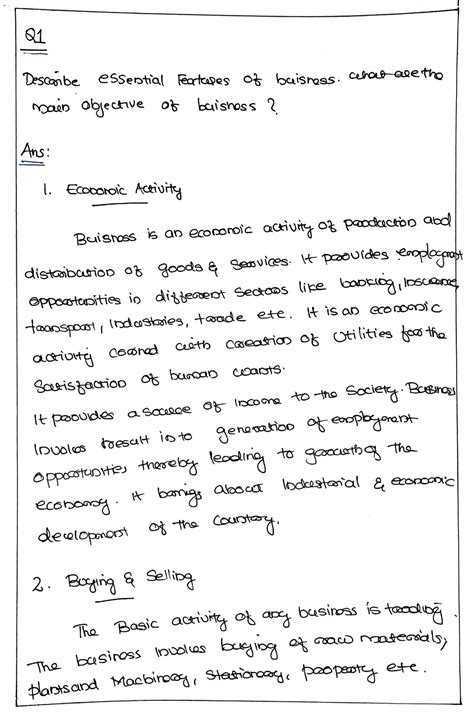 Q1
Describe essential Features of buisness. what are the
main objective of buisness ?
Ans:
1. Economic Activity
Buisness is an economic activity of production and
distribution of goods & Services. It provides employment
opportunities in different Sectors like banking, Insurance,
transport, Industries, trade etc. It is an economic
activity corned with creation of Utilities for the
Satisfaction of human wants.
It provides a source of Income to the Society. Business
Involves result into generation of employment
opportunities thereby leading to growth of the
economy. It brings about Industrial & economic
development of the Country.
2. Buying & Selling
The Basic activity of any business is trading.
The business Involves buying of raw materials,
plants and Machinery, Stationary, property etc.